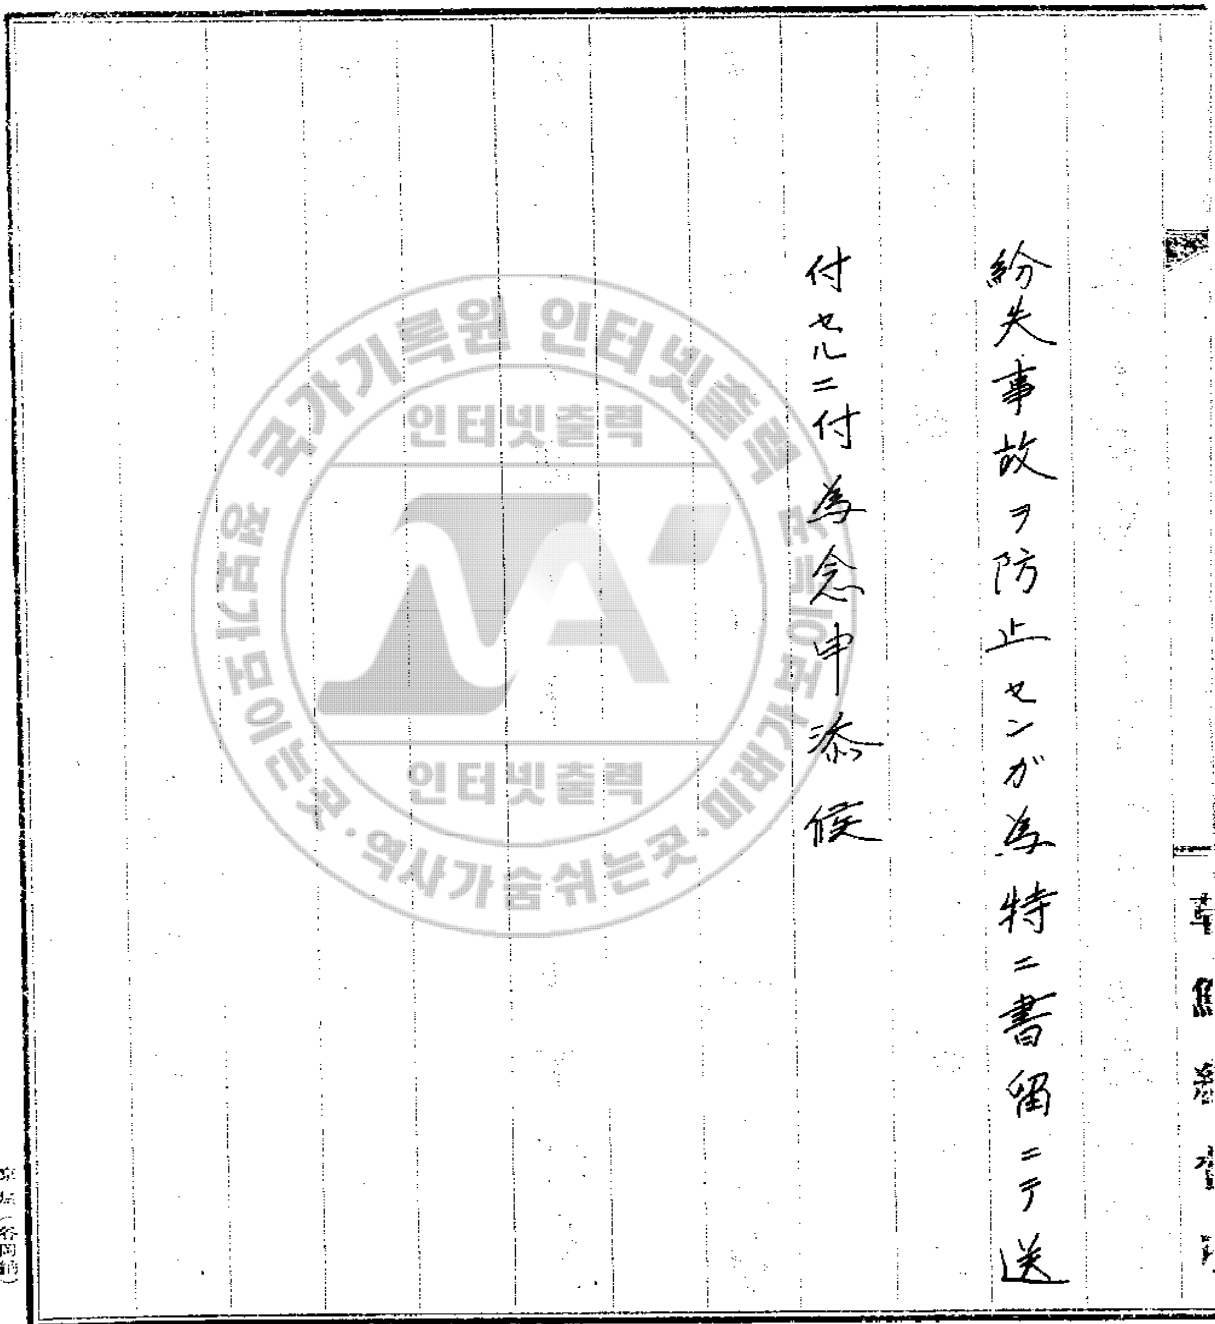 紛失事故ヲ防止センガ為特ニ書留ニテ送
付セルニ付為念申添候
국가기록원 인터넷출력
인터넷출력
인터넷출력
역사가숨쉬는곳·미래가보이
정보가모이는곳